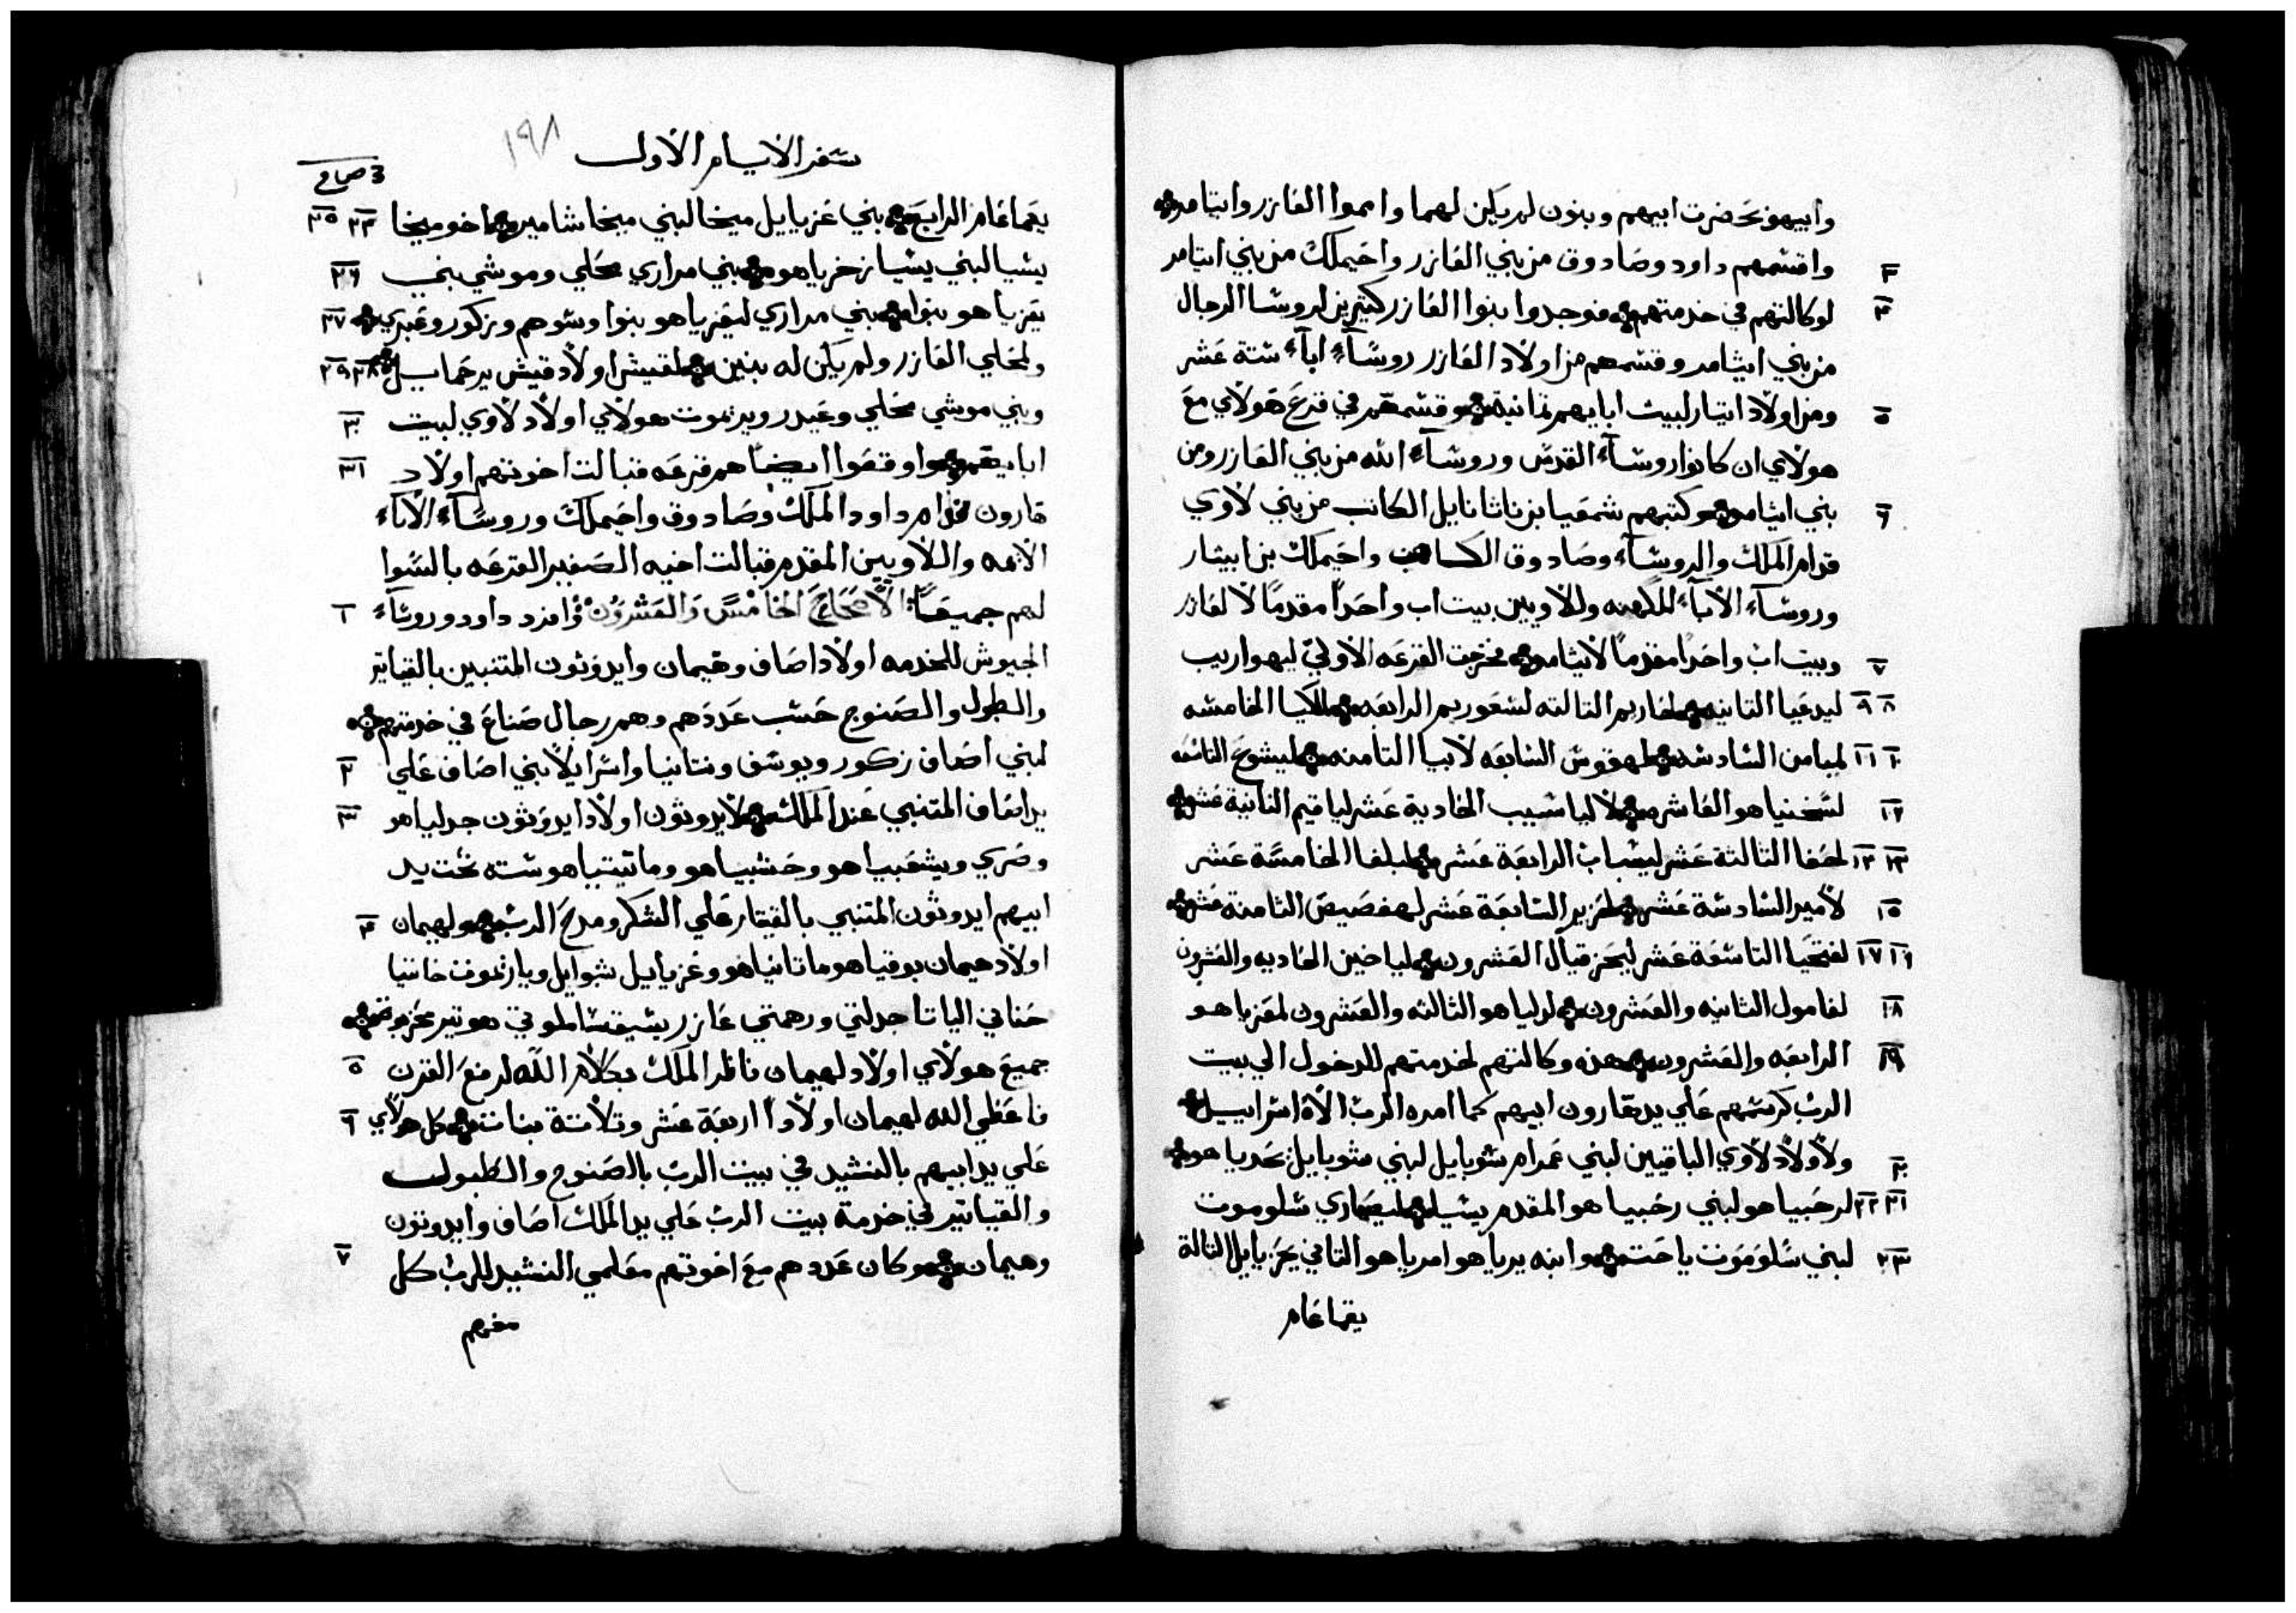 وابيهو بحضرت ابيهم وبنون لم يكن لهما وامموا العازر وايتامر
٣ واقسمهم داود وصادوق من بني العازر واحيملك من بني ايتامر
٤ لوكالتهم في خدمتهم فوجدوا بنوا العازر كتيرين لروسا الرجال
من بني ايثامر وقسمهم من اولاد العازر روسآء اباء ستة عشر
٥ ومن اولاد ايتار لبيت ابايهم تمانية وقسمهم في قرع هولاي مع
هولاي ان كانوا روسآء القدس وروسآء الله من بني العازر ومن
٦ بني ايثامر وكتبهم شمعيا بن ناثانايل الكاتب من بني لاوي
قدام الملك والروسآء وصادوق الكاهن واحيملك بن ابيثار
وروسآء الاباء للكهنه وللاويين بيت اب واحدا مقدما لالعازر
٧ وبيت اب واحدا مقدما لايثامر فخرجت القرعه الاولي ليهواريب
٨ ٩ ليدعيا التانيه لحاريم التالته لسعوريم الرابعه لملكيا الخامسه
١٠ ١١ لميامن السادسه لهقوس السابعه لابيا التامنه ليشوع التاسعه
١٢ لسخنياهو العاشره لالياسيب الحادية عشر لياقيم التانية عشر
١٣ ١٤ لحفا التالتة عشر ليشباب الرابعة عشر لبلغا الخامسة عشر
١٥ لامير السادسة عشر لحزير السابعة عشر لهفصيص الثامنة عشر
١٦ ١٧ لفتحيا التاسعة عشر ليحزقيال العشرون لياخين الحاديه والعشرون
١٨ لغامول الثانيه والعشرون لدلياهو الثالثه والعشرون لمعزياهو
١٩ الرابعه والعشرون هذه وكالتهم لخدمتهم للدخول الي بيت
الرب كرسمهم علي يد هارون ابيهم كما امره الرب الاه اسراييل
٢٠ ولاولاد لاوي الباقيين لبني عمرام شوبايل لبني شوبايل يحدياهو
٢١ ٢٢ لرحبياهو لبني رحبياهو المقدم يشيا ليصهاري شلوموت
٢٣ لبني شلوموت ياحت وابنه يرياهو امرياهو التاني يحزيايل التالة
يقماعام
سفر الايام الاول ١٩٨
يقماعام الرابع بني عزيايل ميخا لبني ميخا شامير اخو ميخا ٢٤ ٢٥
يشيا لبني يشيا زخرياهو بني مراري محلي وموشي بني ٢٦
يعزياهو بنوا بني مراري ليعزياهو بنوا وشوهم وزكور وعبري ٢٧
ولمحلي العازر ولم يكن له بنين لقيش اولاد قيش يرحماييل ٢٨ ٢٩
وبني موشي محلي وعيدر ويريموت هولاي اولاد لاوي لبيت ٣٠
ابايهم واوقعوا ايضا هم قرعه قبالت اخوتهم اولاد ٣١
هارون قدام داود الملك وصادوق واحيملك وروسآء الاباء
الايمه واللاويين المقدم قبالت اخيه الصغير القرعه بالسوا
لهم جميعا الاصحاح الخامس والعشرون وافرد داود وروسآء ١
الجيوش للخدمه اولاد اصاف وهيمان وايدوثون المتنبين بالقياتر
والطبول والصنوج حسب عددهم وهم رجال صناع في خدمتهم
لبني اصاف زكور ويوسف ونتانيا واشرايلا بني اصاف علي ٢
يد اصاف المتنبي عند الملك لايدوثون اولاد ايدوثون جدلياهو ٣
وصري ويشعبياهو وحشبياهو وماتيتياهو سته تحت يد
ابيهم ايدوثون المتنبي بالقيتار علي الشكر ومدح الرب ولهيمان ٤
اولاد هيمان بوقياهو ماتانياهو وعزيايل شوايل وياريموت حانيا
حناني الياتا جدلتي ورهمتي عازر يشبقشا ملوتي هوتير محزيوت
جميع هولاي اولاد لهيمان ناظر الملك بكلام الله لرفع القرن ٥
فاعطي الله لهيمان اولادا اربعة عشر وتلاتة بنات كل هولاي ٦
علي يد ابيهم بالنشيد في بيت الرب بالصنوج والطبول
والقياتير في خدمة بيت الرب علي يد الملك اصاف وايدوثون
وهيمان وكان عددهم مع اخوتهم معلمي النشيد للرب كل ٧
مفهم